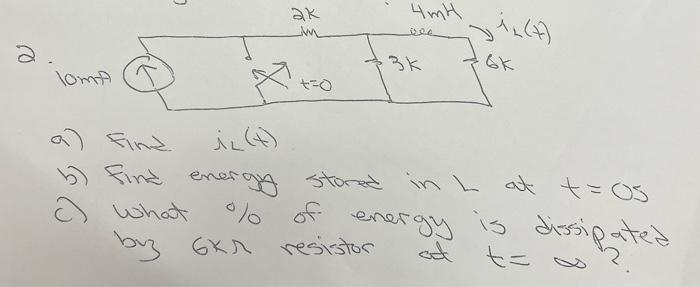 2K 4mH iL(t)
2. 10mA t=0 3K 6K
a) Find iL(t)
b) Find energy stored in L at t=0s
c) What % of energy is dissipated
by 6KΩ resistor at t=∞?